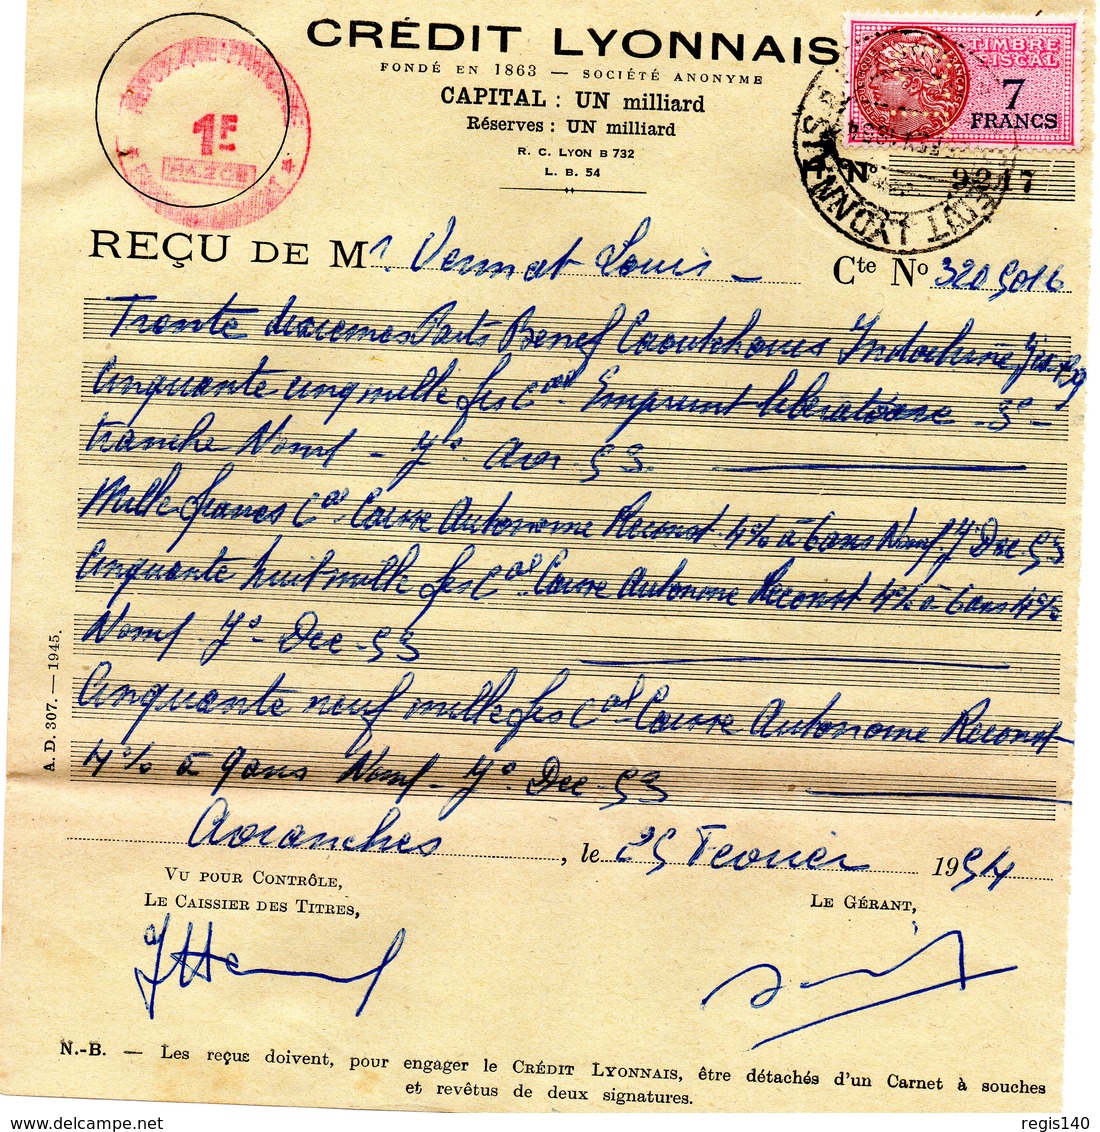 CRÉDIT LYONNAIS
FONDÉ EN 1863 — SOCIÉTÉ ANONYME
CAPITAL : UN milliard
Réserves : UN milliard
R. C. LYON B 732
L. B. 54
TIMBRE
FISCAL
7
FRANCS
1F
No 9217
REÇU DE Mr. Vermat Louis — Cte No 3205016
Trente dixiemes Parts Benef Caoutchoucs Indochine
Cinquante cinq mille frs Cal Emprunt libératoire 5%
tranche Nomf - Jce Avr 53
Mille francs Cal Caisse Autonome Reconst 4% à 6 ans Nomf Jce Dec 53
Cinquante huit mille frs Cal Caisse Autonome Reconst 4% à 6 ans 4%
Nomf Jce Dec 53
Cinquante neuf mille frs Cal Caisse Autonome Reconst
4% à 9 ans Nomf Jce Dec 53
Avranches, le 25 Fevrier 1954
VU POUR CONTRÔLE,
LE CAISSIER DES TITRES,
LE GÉRANT,
A. D. 307. — 1945.
N.-B. — Les reçus doivent, pour engager le CRÉDIT LYONNAIS, être détachés d'un Carnet à souches
et revêtus de deux signatures.
regis140